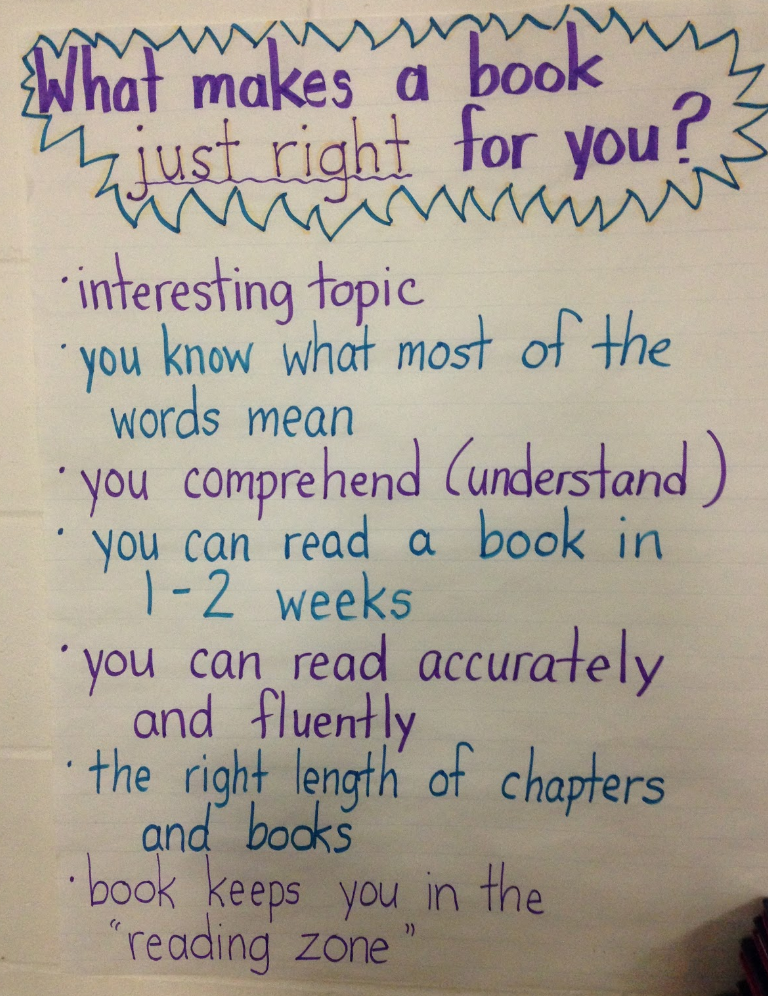 What makes a book
just right for you?
· interesting topic
· you know what most of the
words mean
· you comprehend (understand)
· you can read a book in
1-2 weeks
· you can read accurately
and fluently
· the right length of chapters
and books
· book keeps you in the
"reading zone"